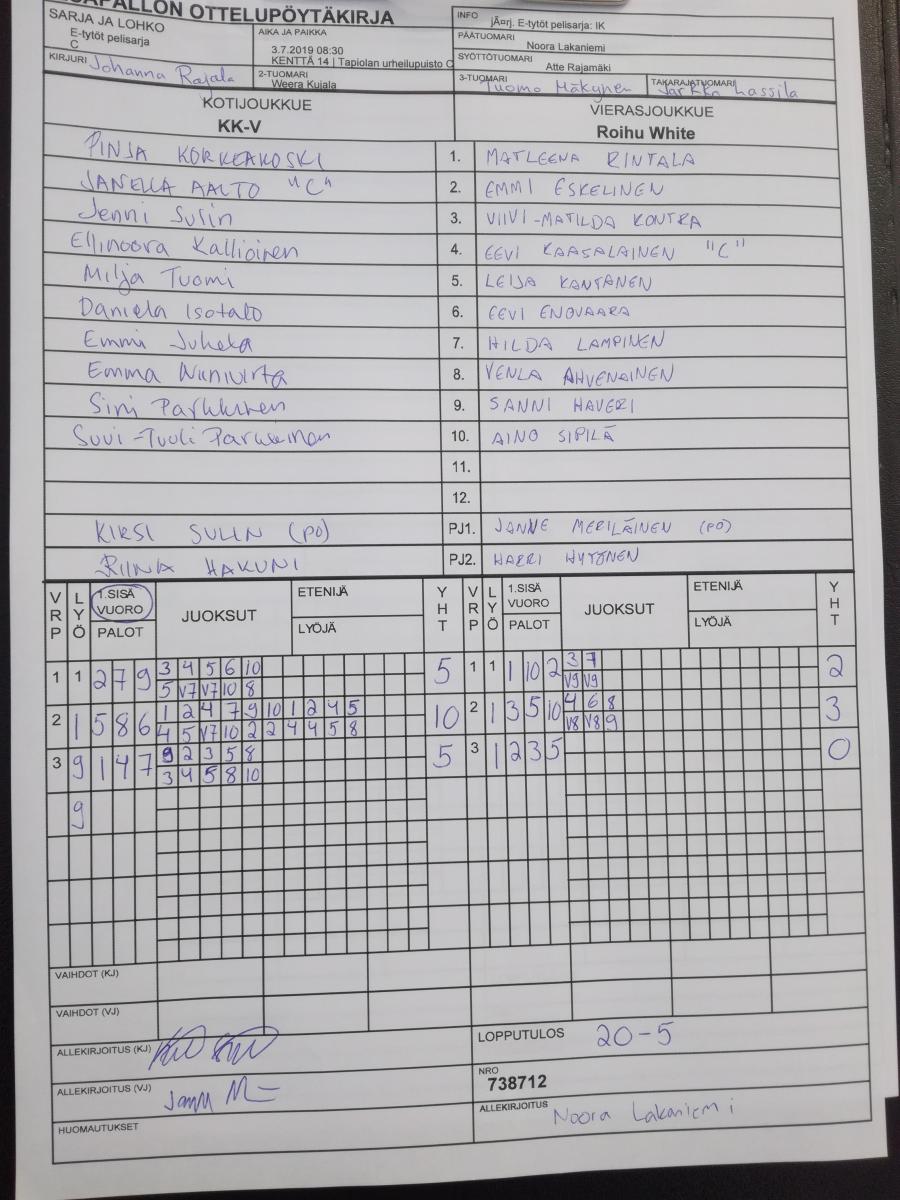 OTTELUPÖYTÄKIRJA
SARJA JA LOHKO
E-tytöt pelisarja
C
AIKA JA PAIKKA
3.7.2019 08:30
KENTTÄ 14 | Tapiolan urheilupuisto C
INFO
jÃ¤rj. E-tytöt pelisarja: IK
PÄÄTUOMARI
Noora Lakaniemi
SYÖTTÖTUOMARI
Atte Rajamäki
KIRJURI Johanna Rajala
2-TUOMARI
Weera Kujala
3-TUOMARI Tuomo Mäkynen
TAKARAJATUOMARI Jarkko Lassila
KOTIJOUKKUE VIERASJOUKKUE
KK-V Roihu White
PINJA KORKEAKOSKI 1. MATLEENA RINTALA
JANELLA AALTO "C" 2. EMMI ESKELINEN
Jenni Sulin 3. VIIVI-MATILDA KONTRA
Ellinoora Kallioinen 4. EEVI KAASALAINEN "C"
Milja Tuomi 5. LEIJA KANTANEN
Daniela Isotalo 6. EEVI ENOVAARA
Emmi Juhela 7. HILDA LAMPINEN
Emma Wiinivirta 8. VENLA AHVENAINEN
Sini Parkkinen 9. SANNI HAVERI
Suvi-Tuuli Parkkinen 10. AINO SIPILÄ
11.
12.
KIRSI SULIN (PO) PJ1. JANNE MERILÄINEN (PO)
RIINA HAKUNI PJ2. HARRI HYTÖNEN
VRP LYÖ 1.SISÄ VUORO PALOT JUOKSUT ETENIJÄ LYÖJÄ YHT VRP LYÖ 1.SISÄ VUORO PALOT JUOKSUT ETENIJÄ LYÖJÄ YHT
1 1 2 7 9 3 4 5 6 10 5 1 1 1 10 2 3 7 2
5 V7 V7 10 8 V9 V9
2 1 5 8 6 1 2 4 7 9 10 1 2 4 5 10 2 1 3 5 10 4 6 8 3
4 5 V7 10 2 2 4 4 5 8 V8 V8 9
3 9 1 4 7 9 2 3 5 8 5 3 1 2 3 5 0
3 4 5 8 10
9
VAIHDOT (KJ)
VAIHDOT (VJ)
ALLEKIRJOITUS (KJ)
LOPPUTULOS 20-5
ALLEKIRJOITUS (VJ)
NRO
738712
HUOMAUTUKSET
ALLEKIRJOITUS Noora Lakaniemi